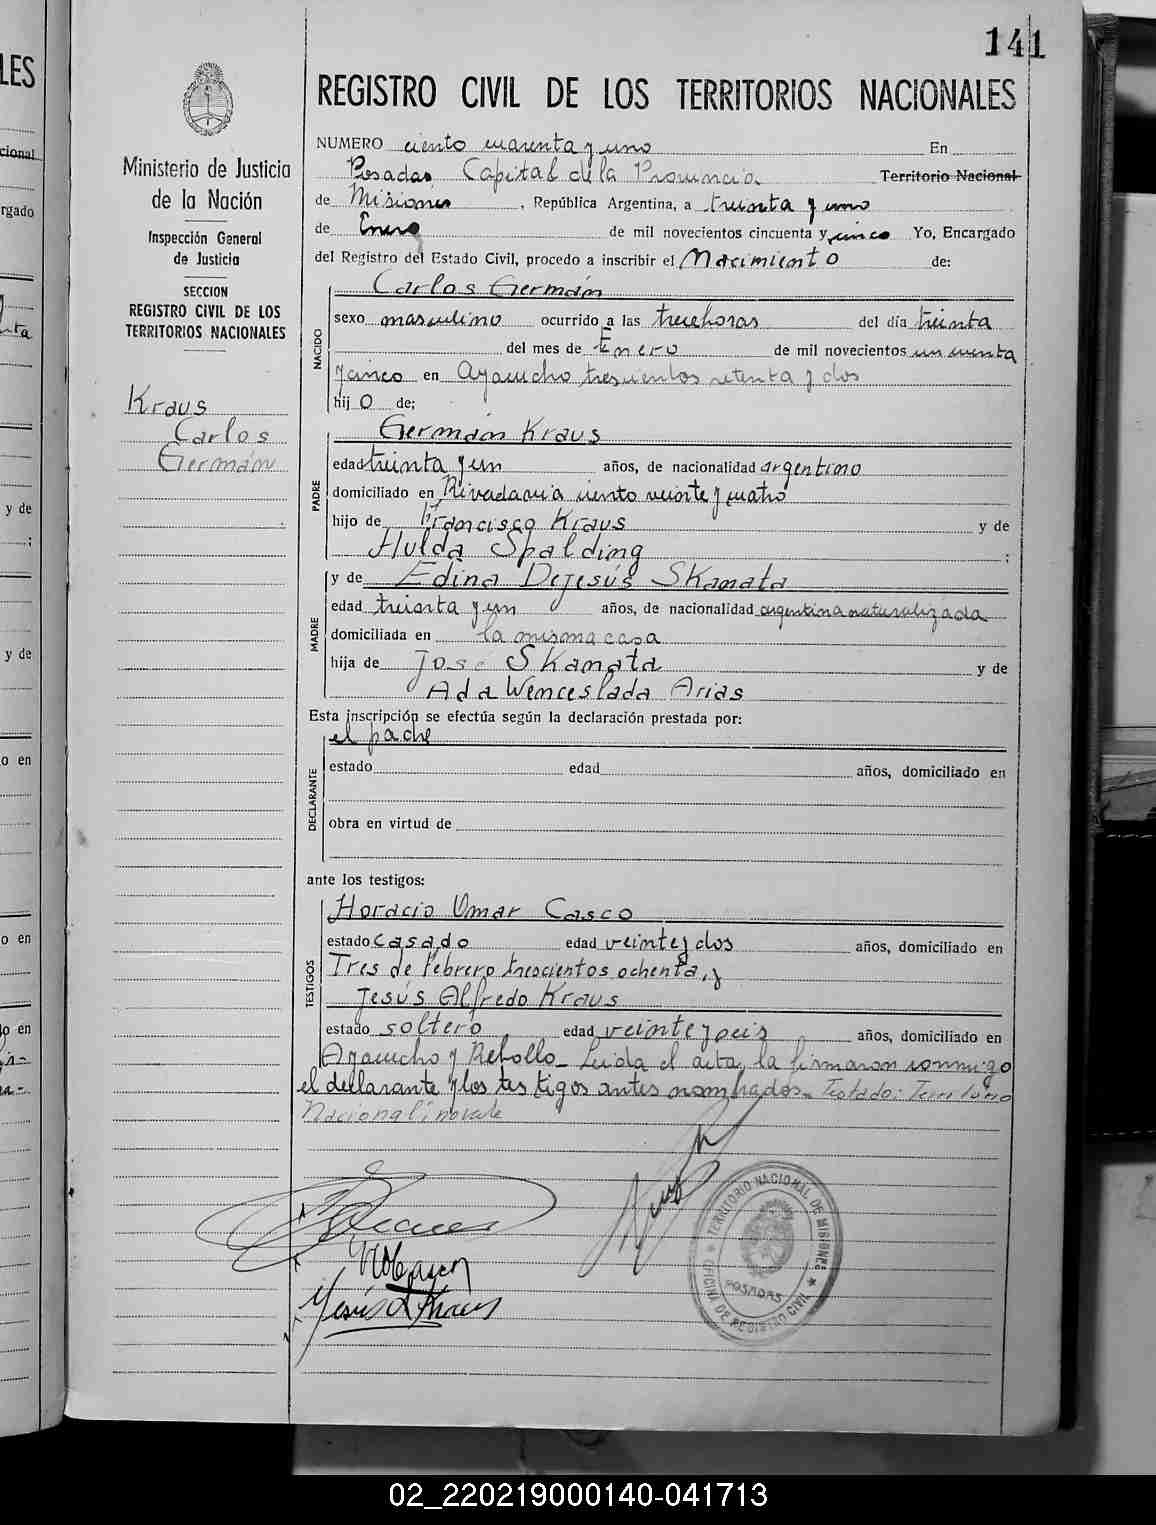 141
REGISTRO CIVIL DE LOS TERRITORIOS NACIONALES
Ministerio de Justicia
de la Nación
Inspección General
de Justicia
SECCION
REGISTRO CIVIL DE LOS
TERRITORIOS NACIONALES
Kraus
Carlos
Germán
NUMERO ciento cuarenta y uno En
Posadas, Capital de la Provincia Territorio Nacional
de Misiones, República Argentina, a treinta y uno
de Enero de mil novecientos cincuenta y cinco Yo, Encargado
del Registro del Estado Civil, procedo a inscribir el Nacimiento de:
Carlos Germán
NACIDO
sexo masculino ocurrido a las trece horas del día treinta
del mes de Enero de mil novecientos cincuenta
y cinco en Ayacucho trescientos setenta y dos
hij o de;
Germán Kraus
PADRE
edad treinta y un años, de nacionalidad argentino
domiciliado en Rivadavia ciento veinte y cuatro
hijo de Francisco Kraus y de
Hulda Spalding ;
y de Edina Dejesús Skanata
MADRE
edad treinta y un años, de nacionalidad argentina naturalizada
domiciliada en la misma casa
hija de José Skanata y de
Ada Wenceslada Arias
Esta inscripción se efectúa según la declaración prestada por:
el padre
DECLARANTE
estado edad años, domiciliado en
obra en virtud de
ante los testigos:
Horacio Omar Casco
TESTIGOS
estado casado edad veinte y dos años, domiciliado en
Tres de Febrero trescientos ochenta, y
Jesús Alfredo Kraus
estado soltero edad veinte y seis años, domiciliado en
Ayacucho y Rebollo_ Leida el acta, la firmaron conmigo
el declarante y los testigos antes nombrados_ Testado: Territorio
Nacional: no vale
TERRITORIO NACIONAL DE MISIONES
POSADAS
OFICINA DE REGISTRO CIVIL
Jesús A Kraus
02_220219000140-041713